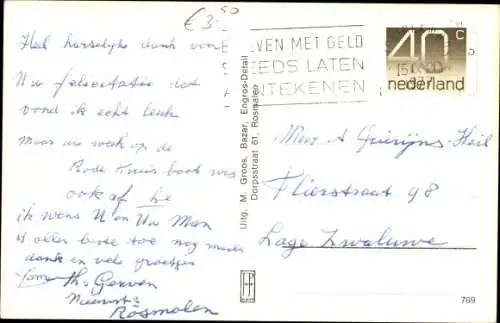 €3.50
Heel hartelijk dank voor
Uw felicitatie dat
vond ik echt leuk
Maar uw werk op de
Rode Kruis boot was
ook af he
ik wens U en Uw Man
't aller beste toe nog maals
dank en vele groetjes
Fam Th. Gerven
Rosmalen
Uitg. M. Groos, Bazar, Engros-Detail
Dorpsstraat 61, Rosmalen
BRIEVEN MET GELD
STEEDS LATEN
AANTEKENEN
40 c
nederland
Mevr A Quirijns-Heil
Flierstraat 98
Lage Zwaluwe
769